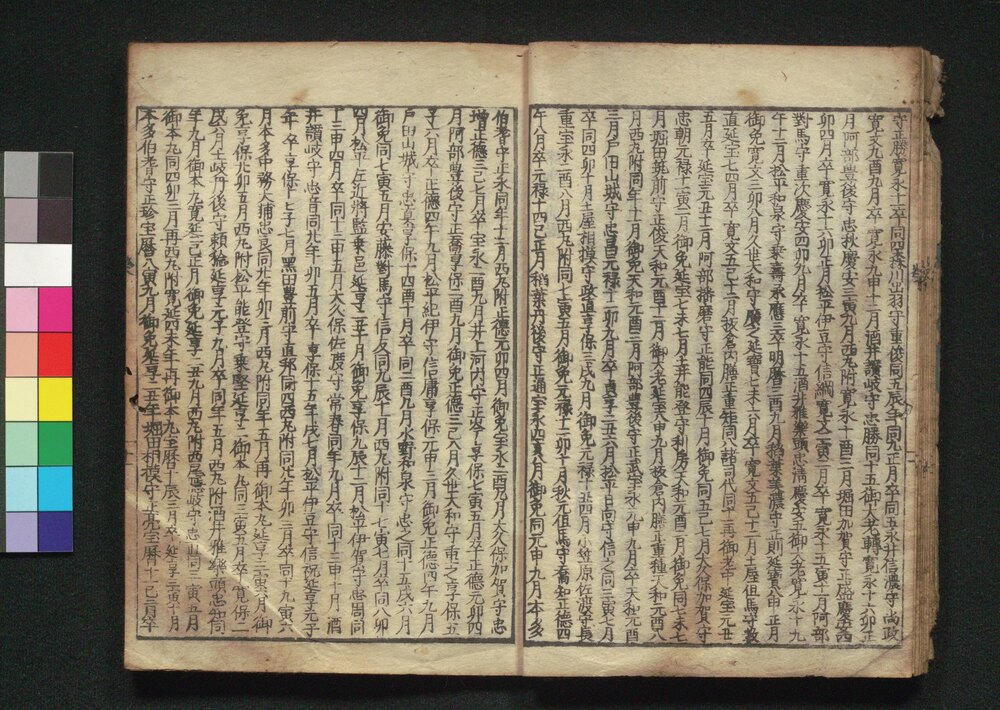 守正勝寛永十卒同四森川出羽守重俊同五辰年同九正月卒同五永井信濃守尚政
寛文九酉九月卒寛永九申十二月酒井讃岐守忠勝同十五御大老轉寛永十六卯正
月阿部豊後守忠秋慶安三寅九月西丸附寛永十酉三月堀田加賀守正盛慶安四
卯四月卒寛永十六卯正月松平伊豆守信綱寛文二寅三月卒寛永十五寅十一月阿部
對馬守重次慶安四卯九月卒寛永十五酒井雅樂頭忠清慶安五御大老寛永十九
午十二月松平和泉守乗壽承應三卒明暦三酉九月稲葉美濃守正則延寶八申正月
御免寛文三卯八月久世大和守廣之延寶七未六月卒寛文五巳十二月土屋但馬守数
直延宝七四月卒寛文五巳十二月板倉内膳正重矩同八諸司代同十再御老中延宝元丑
五月卒延宝元丑十二月阿部播磨守正能同四辰十月御免同五巳七月大久保加賀守
忠朝元禄十一寅二月御免延宝七未七月土井能登守利房天和元酉二月御免同七未七
月堀田筑前守正俊天和元酉十一月御大老延宝八申九月板倉内膳正重種天和元酉八
月西丸附同年十一月御免天和元酉三月阿部豊後守正武宝永元申九月卒天和元酉
三月戸田山城守忠昌元禄十二卯九月卒貞享二丑六月松平日向守信之同三寅七月
卒同四卯十月土屋相模守政直享保三戌九月御免元禄十丑四月小笠原佐渡守長
重宝永二酉八月西丸附同七寅五月御免元禄十二卯十月秋元但馬守喬知正徳四
午八月卒元禄十四巳正月稲葉丹後守正通宝永四亥八月御免同元申九月本多
伯耆守正永同年十二月西丸附正徳元卯四月御免宝永二酉九月大久保加賀守忠
増正徳三巳七月卒宝永二酉九月井上河内守正岑享保七寅五月卒正徳元卯四
月阿部豊後守正喬享保二酉九月御免正徳三巳八月久世大和守重之享保五
子六月卒正徳四午九月松平紀伊守信庸享保元申三月御免正徳四午九月
戸田山城守忠真享保十四酉十月卒同二酉九月水野和泉守忠之同十五戌六月
御免同七寅五月安藤對馬守信友同九辰十一月西丸附同十七寅七月卒同八卯
四月松平左近将監乗邑延享二丑十月御免享保九辰十二月松平伊賀守忠周同
十三申四月卒同十三申五月大久保佐渡守常春同年九月卒同十三申十月酒
井讃岐守忠音同廿年卯五月卒享保十五年戌七月松平伊豆守信祝延享元子
年卒享保十七子七月黒田豊前守直邦同四西丸附同廿年卯三月卒同十九寅六
月本多中務大輔忠良同廿年卯三月西丸附同年五月再御本丸延享三寅月御
免享保廿卯五月西丸附松平能登守乗堅延享二御本丸同三寅五月卒寛保二
戌六月土岐丹後守頼稔延享元子九月卒同年五月西丸附酒井雅樂頭忠知同
年九月御本丸寛延二巳正月御免延享二丑九月西丸附西尾隠岐守忠尚同三寅五月
御本丸同四卯三月再西丸附寛延四未年再御本丸宝暦十辰三月卒延享三寅十月
本多伯耆守正珍宝暦八寅九月御免延享二五年堀田相模守正亮宝暦十一巳二月卒